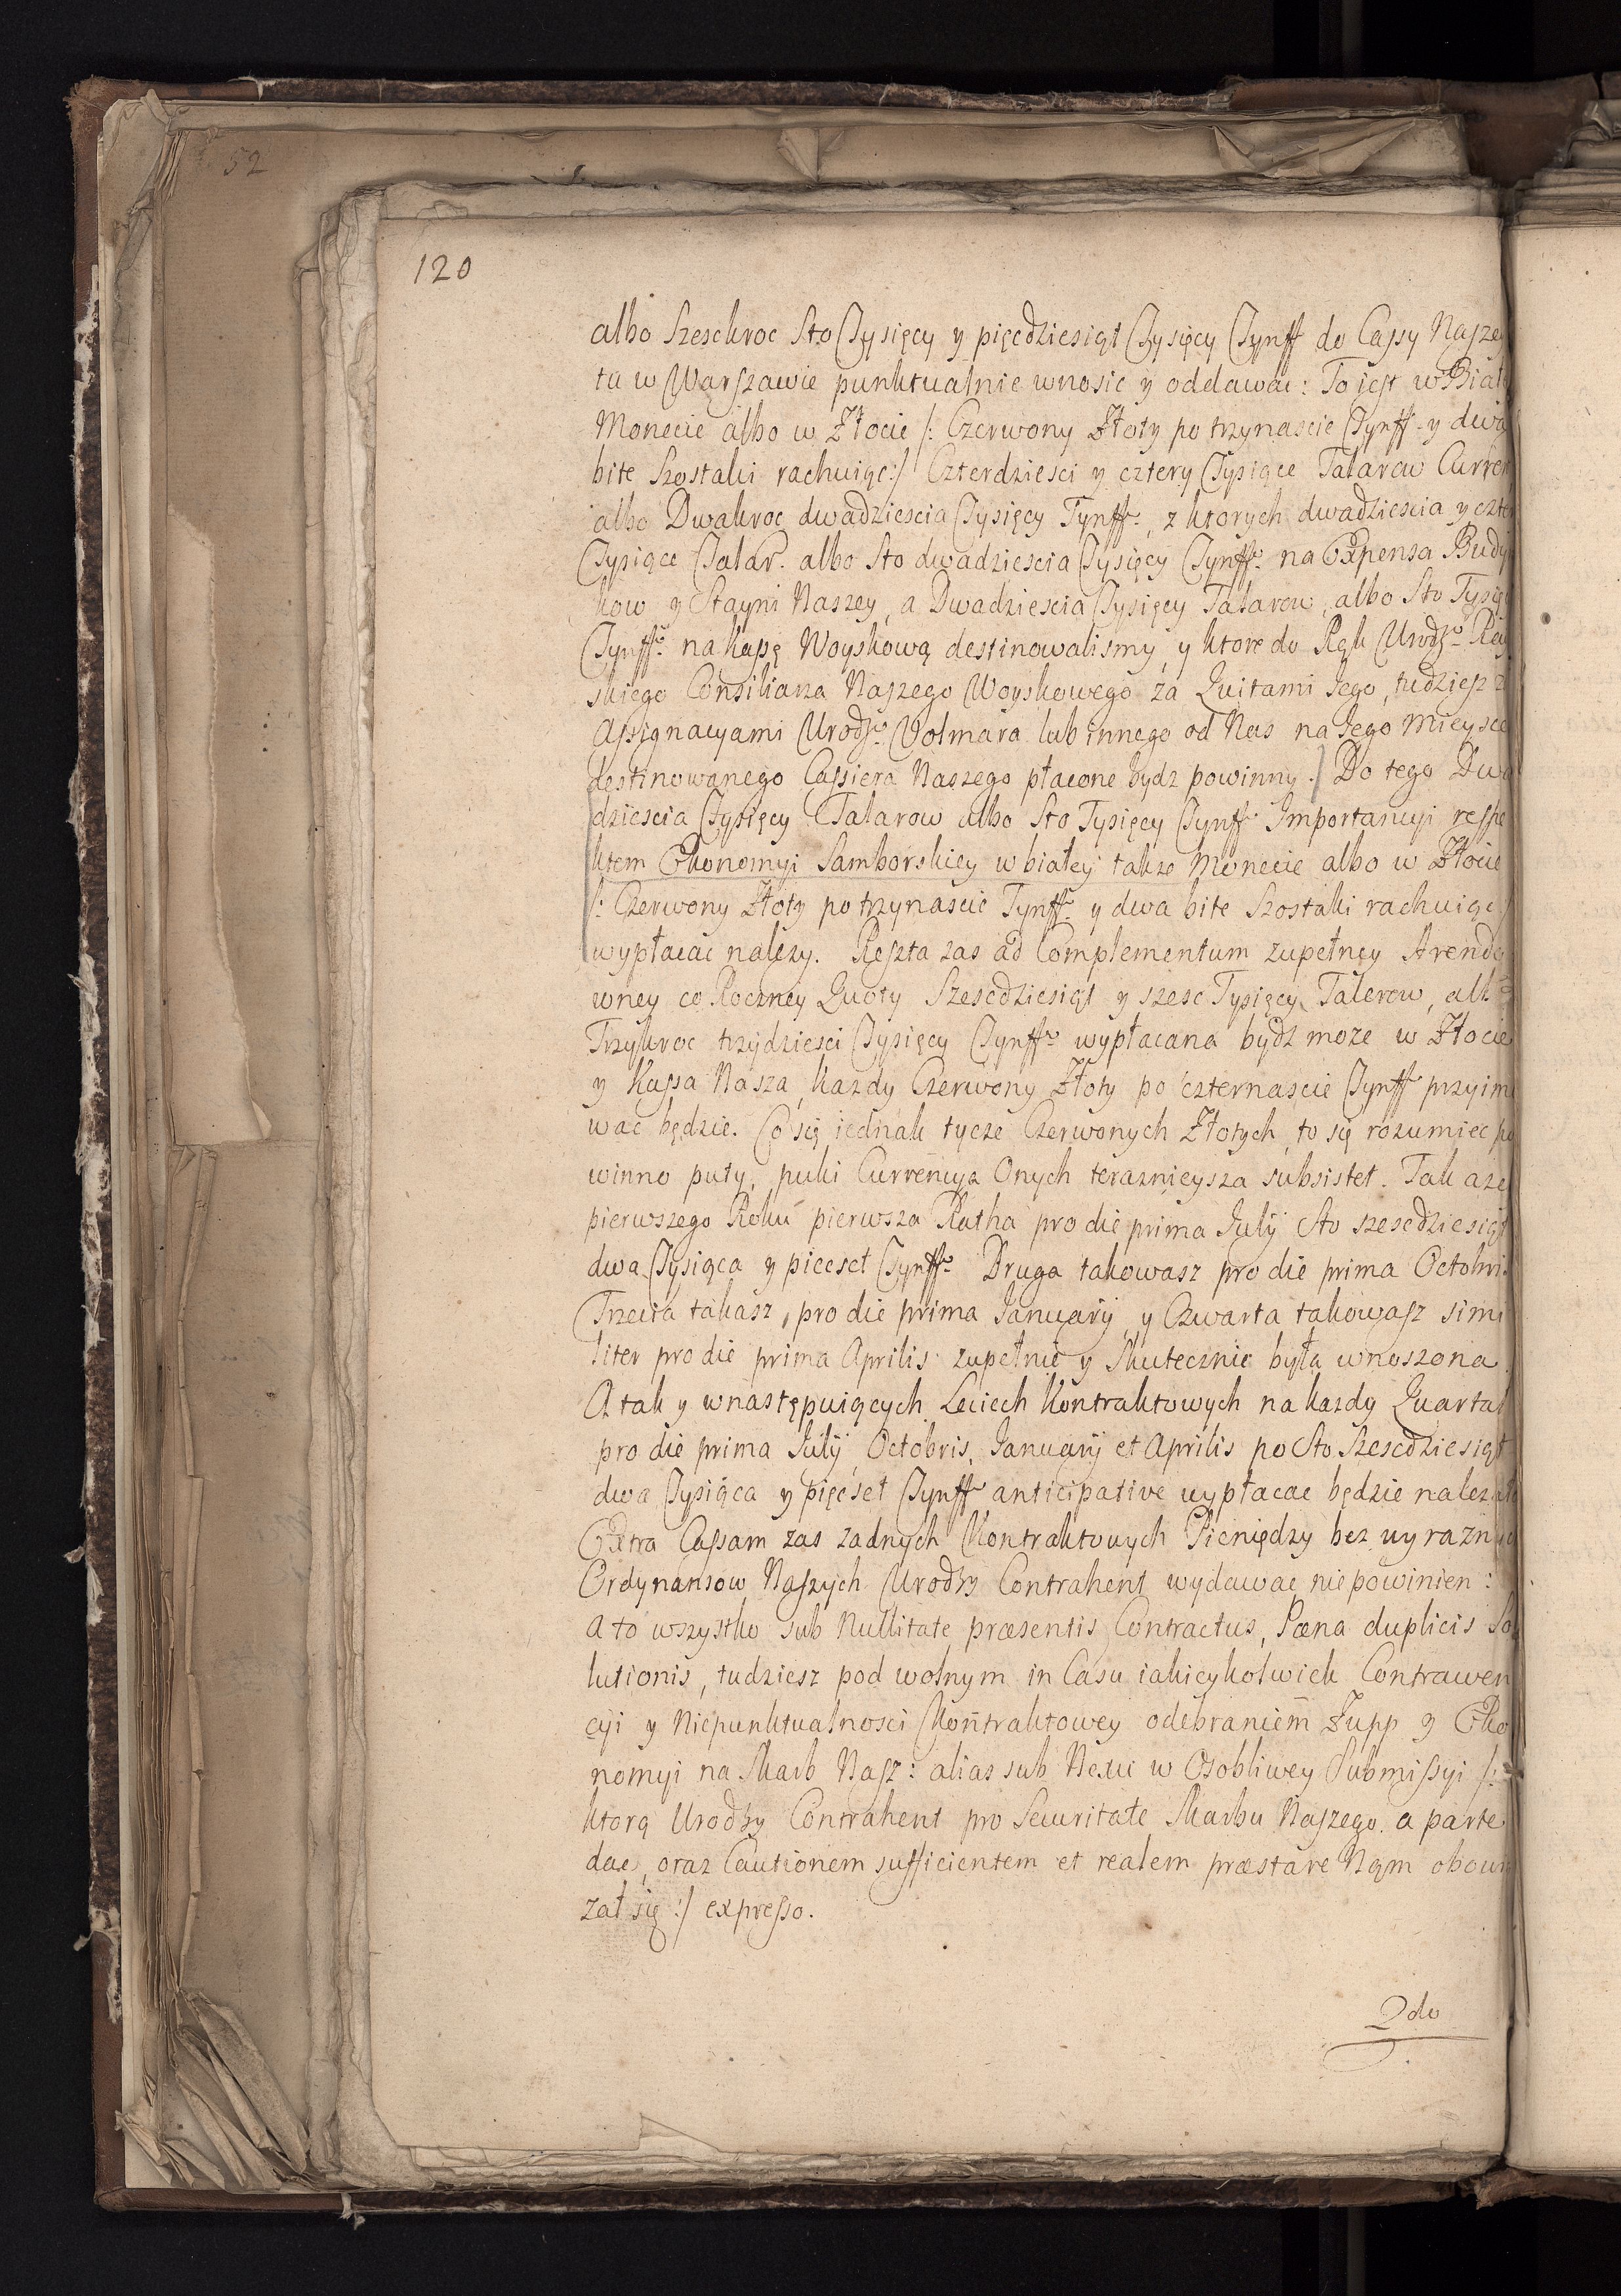 52
120
albo Szesckroc Sto Tysięcy y pięcdziesiąt Tysięcy Tynff do Cassy Naszey
tu w Warszawie punktualnie wnosic y oddawac: To jest w Biał
Monecie albo w Złocie /: Czerwony Złoty po trzynascie Tynff y dwa
bite Szostaki rachuiąc :/ Czterdziesci y cztery Tysiące Talarow Curren
albo Dwakroc dwadziescia Tysięcy Tynffw, z ktorych dwadziescia y czter
Tysiące Talar. albo Sto dwadziescia Tysięcy Tynffw na Expensa Budy
kow y Stayni Naszey, a Dwadziescia Tysięcy Talarow, albo Sto Tysię
Tynffw na kassę Woyskową destinowalismy, y ktore do Rąk Urodzo
skiego Consiliarza Naszego Woyskowego za Quitami Jego, tudziesz z
Assignacyami Urodzo Volmara lub innego od Nas na Jego Mieysce
destinowanego Cassiera Naszego płacone bydz powinny. Do tego Dwa
dziescia Tysięcy Talarow albo Sto Tysięcy Tynff. Importancyi respe
ktem Ekonomyi Samborskiey w białey takze Monecie albo w Złocie
/: Czerwony Złoty po trzynascie Tynffw y dwa bite Szostaki rachuiąc
wypłacac nalezy. Reszta zas ad Complementum zupełney Arendo
wney co Roczney Quoty Szescdziesiąt y szesc Tysięcy Talerow, alb
Trzykroc trzydziesci Tysięcy Tynffw wypłacana bydz moze w Złocie
y Kassa Nasza kazdy Czerwony Złoty po czternascie Tynff przyim
wac będzie. Co się iednak tycze Czerwonych Złotych, to się rozumiec po
winno puty, puki Currencya Onych teraznieysza subsistet. Tak aze
pierwszego Roku pierwsza Ratha pro die prima July Sto szescdziesiąt
dwa Tysiąca y piecset Tynffw Druga takowasz pro die prima Octobris
Trzecia takasz, pro die prima January, y Czwarta takowasz simi
liter pro die prima Aprilis zupełnie y skutecznie była wnoszona.
A tak y w następuiących Leciech Kontraktowych na kazdy Quartał
pro die prima July, Octobris, January et Aprilis po Sto Szescdziesiąt
dwa Tysiąca y pięcset Tynffw anticipative wypłacac będzie nalezało
Extra Cassam zas zadnych Kontraktowych Pieniędzy bez wyraznych
Ordynansow Naszych Urodzy Contrahent wydawac nie powinien:
A to wszystko sub Nullitate præsentis Contractus, Pæna duplicis So
lutionis, tudziesz pod wolnym in Casu iakieykolwiek Contrawen
cyi y Niepunktualnosci Kontraktowey odebraniem Zupp y Eko
nomyi na Skarb Nasz: alias sub Nexu w Osobliwey Submissyi /:
ktorą Urodzy Contrahent pro Securitate Skarbu Naszego a parte
dac, oraz Cautionem sufficientem et realem præstare Nam obowi
zał się :/ expresso.
2do